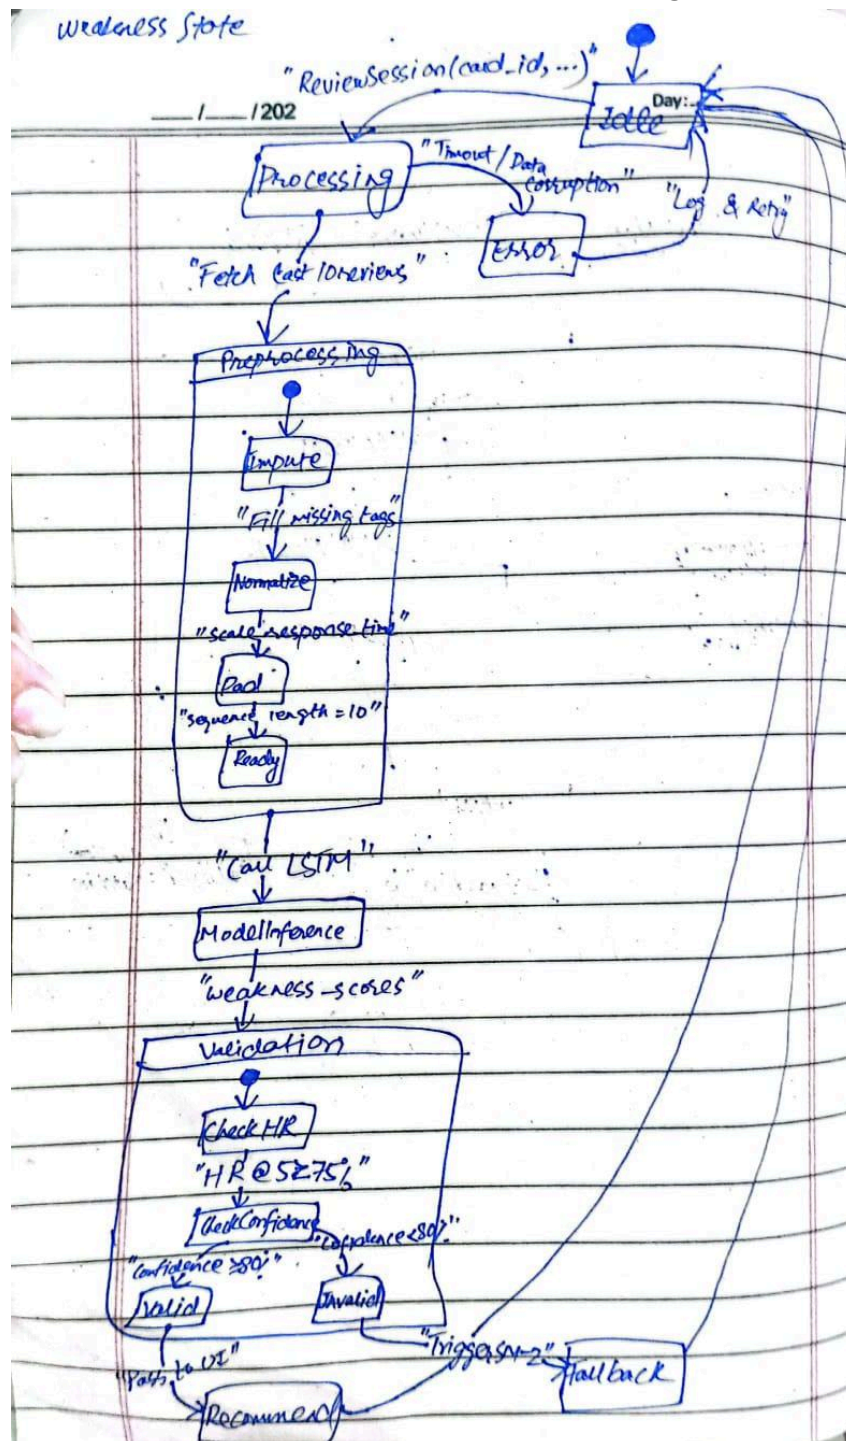 Weakness State
"ReviewSession(card_id, ...)"
___/___/202
Day:
Idle
Processing
"Timout / Data
corruption"
"Log & Retry"
Error
"Fetch Last 10 reviews"
Preprocessing
Impute
"Fill missing tags"
Normalize
"scale response time"
Pad
"sequence length = 10"
Ready
"Call LSTM"
ModelInference
"weakness_scores"
Validation
CheckHR
"HR@5≥75%"
CheckConfidance
"Confidence ≥80%" "Confidence <80%"
Valid Invalid
"Pass to UI" "Trigger SM-2" Fallback
Recommend